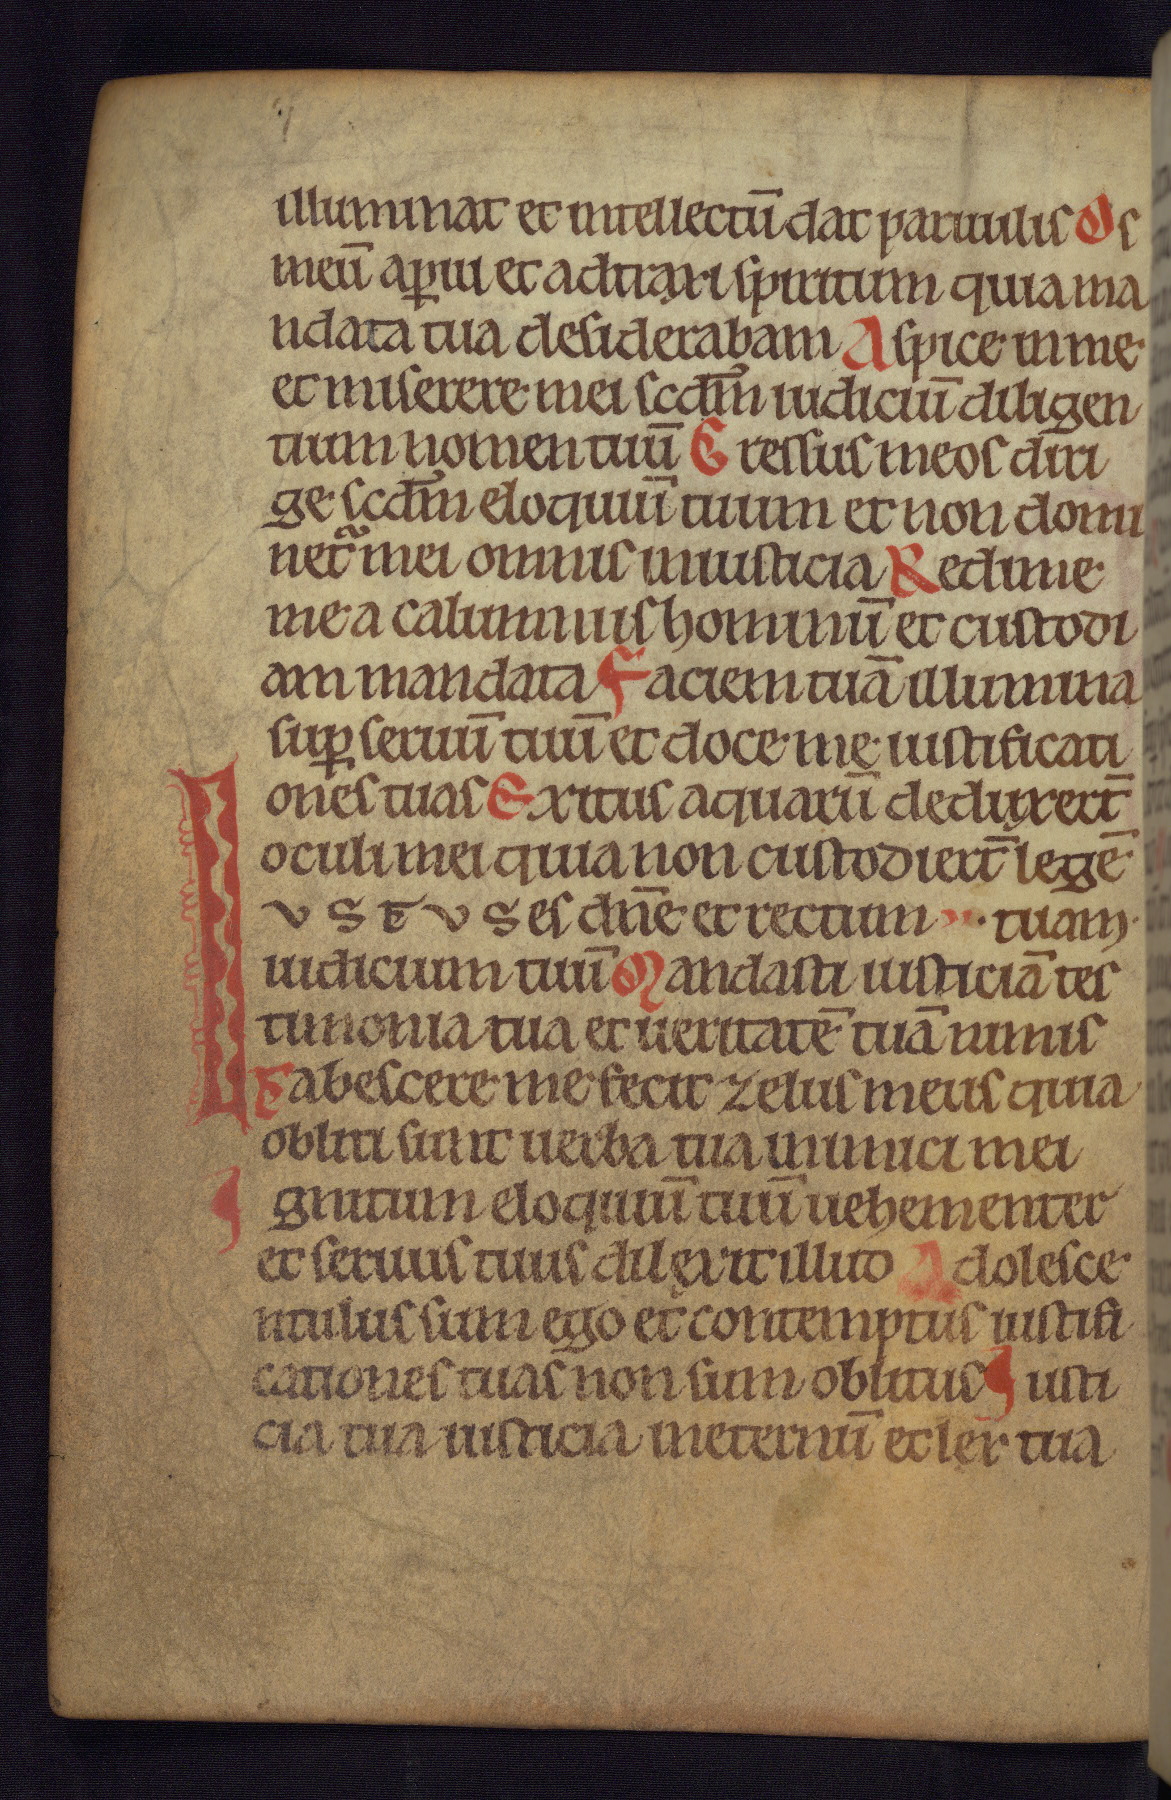 illuminat et intellectū dat paruulis Os
meū aꝑui et adtraxi spiritum quia ma
ndata tua desiderabam Aspice in me
et miserere mei scdm̄ iudiciū diligen
tium nomen tuū Gressus meos diri
ge scdm̄ eloquiū tuum et non domi
net᷑ mei omnis iniusticia Redime
me a calumniis hominū et custodi
am mandata Faciem tuā illumina
suꝑ seruū tuū et doce me iustificati
ones tuas Exitus aquarū deduxert̄
oculi mei quia non custodiert̄ legē
IVSTVS es dn̄e et rectum tuam
iudicium tuū Mandasti iusticiā tes
timonia tua et ueritatē tuā nimis
Tabescere me fecit zelus meus quia
obliti sunt uerba tua inimici mei
Ignitum eloquiū tuū uehementer
et seruus tuus dilexit illud Adolesce
ntulus sum ego et contemptus iustifi
cationes tuas non sum oblitus Iusti
cia tua iusticia in eternū et lex tua